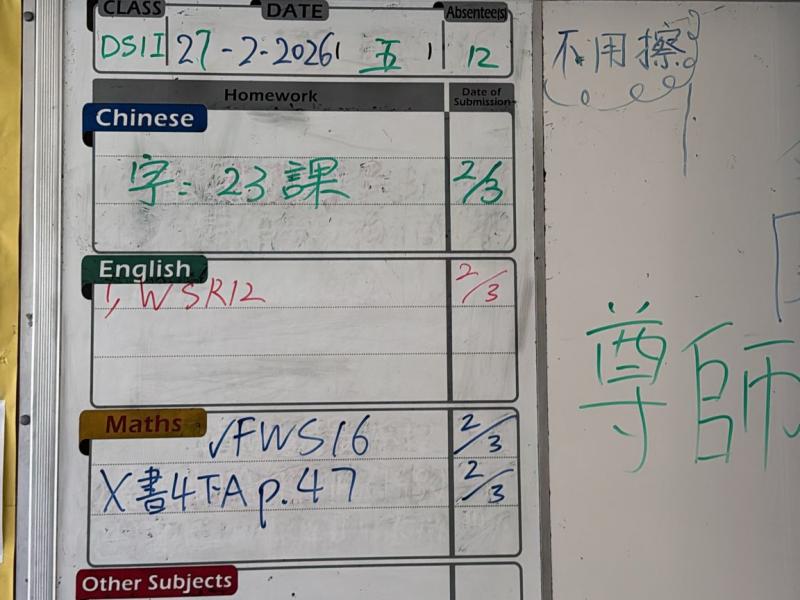 CLASS DATE Absentee(s)
DS1I 27-2-2026 (五) 12
Homework Date of Submission
Chinese
字: 23課 2/3
English
1, WSR12 2/3
Maths
✓FWS16 2/3
X書4下A p.47 2/3
Other Subjects
不用擦
尊師